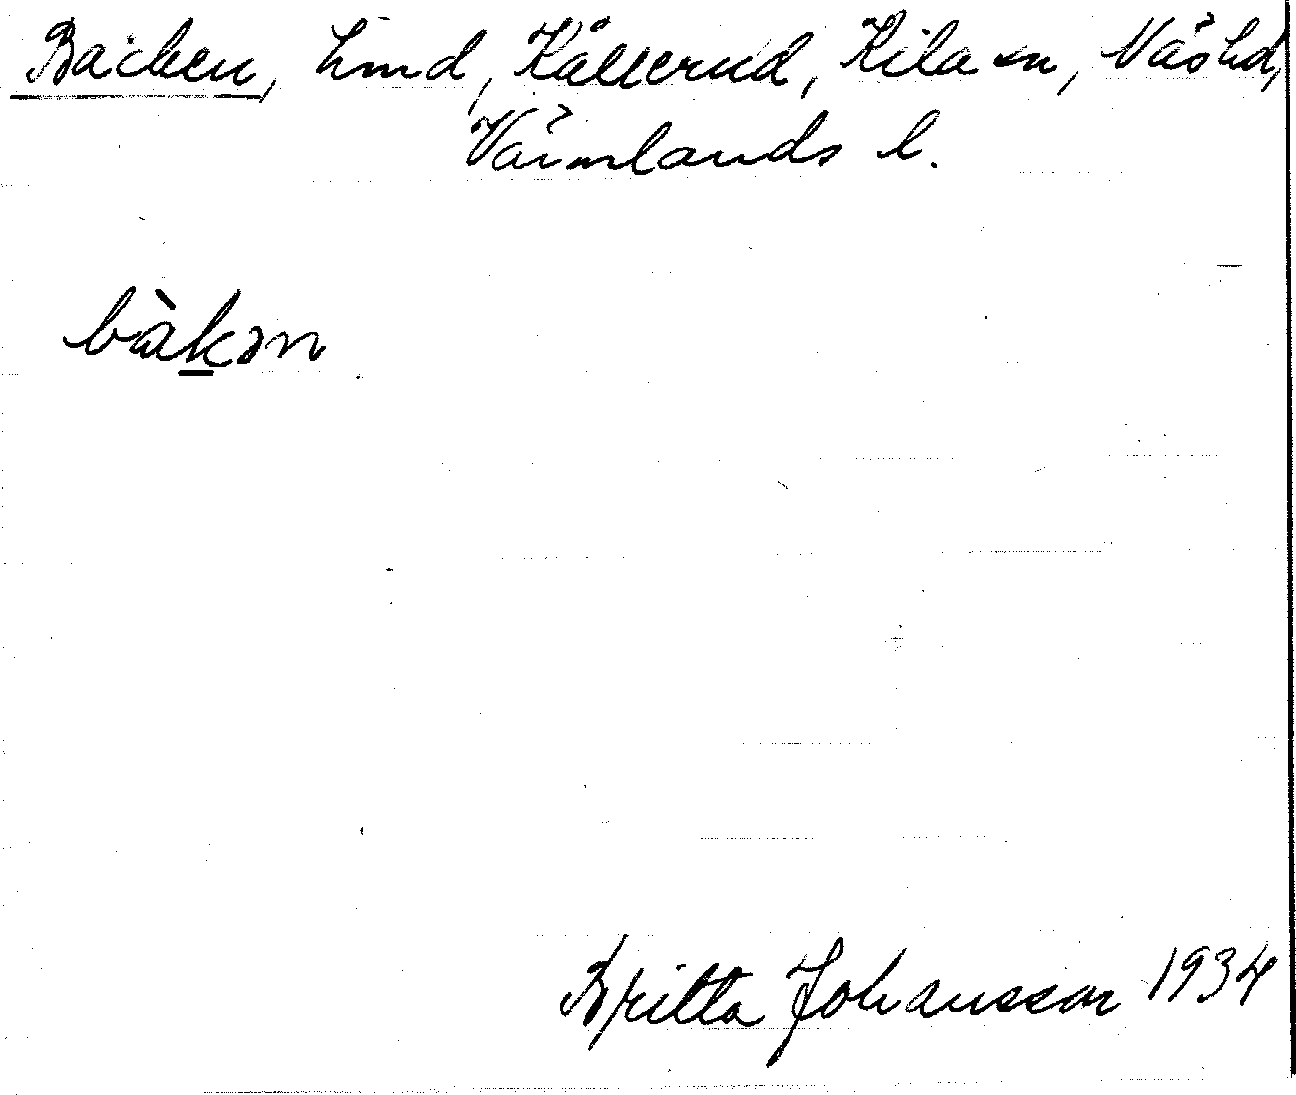 Bäcken, Lund, Kållerud, Kila sn, Näs hd,
Värmlands l.
bä̀kən
Britta Johansson 1934